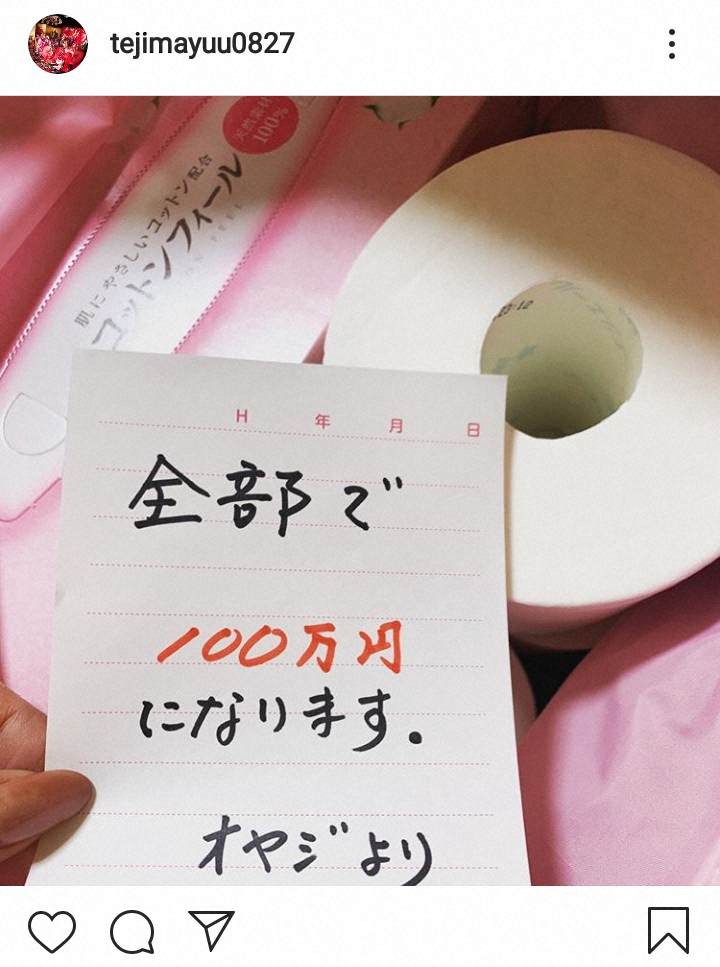 tejimayuu0827
天然素材
100%
肌にやさしいコットン配合
コットンフィール
H 年 月 日
全部で
100万円
になります.
オヤジより